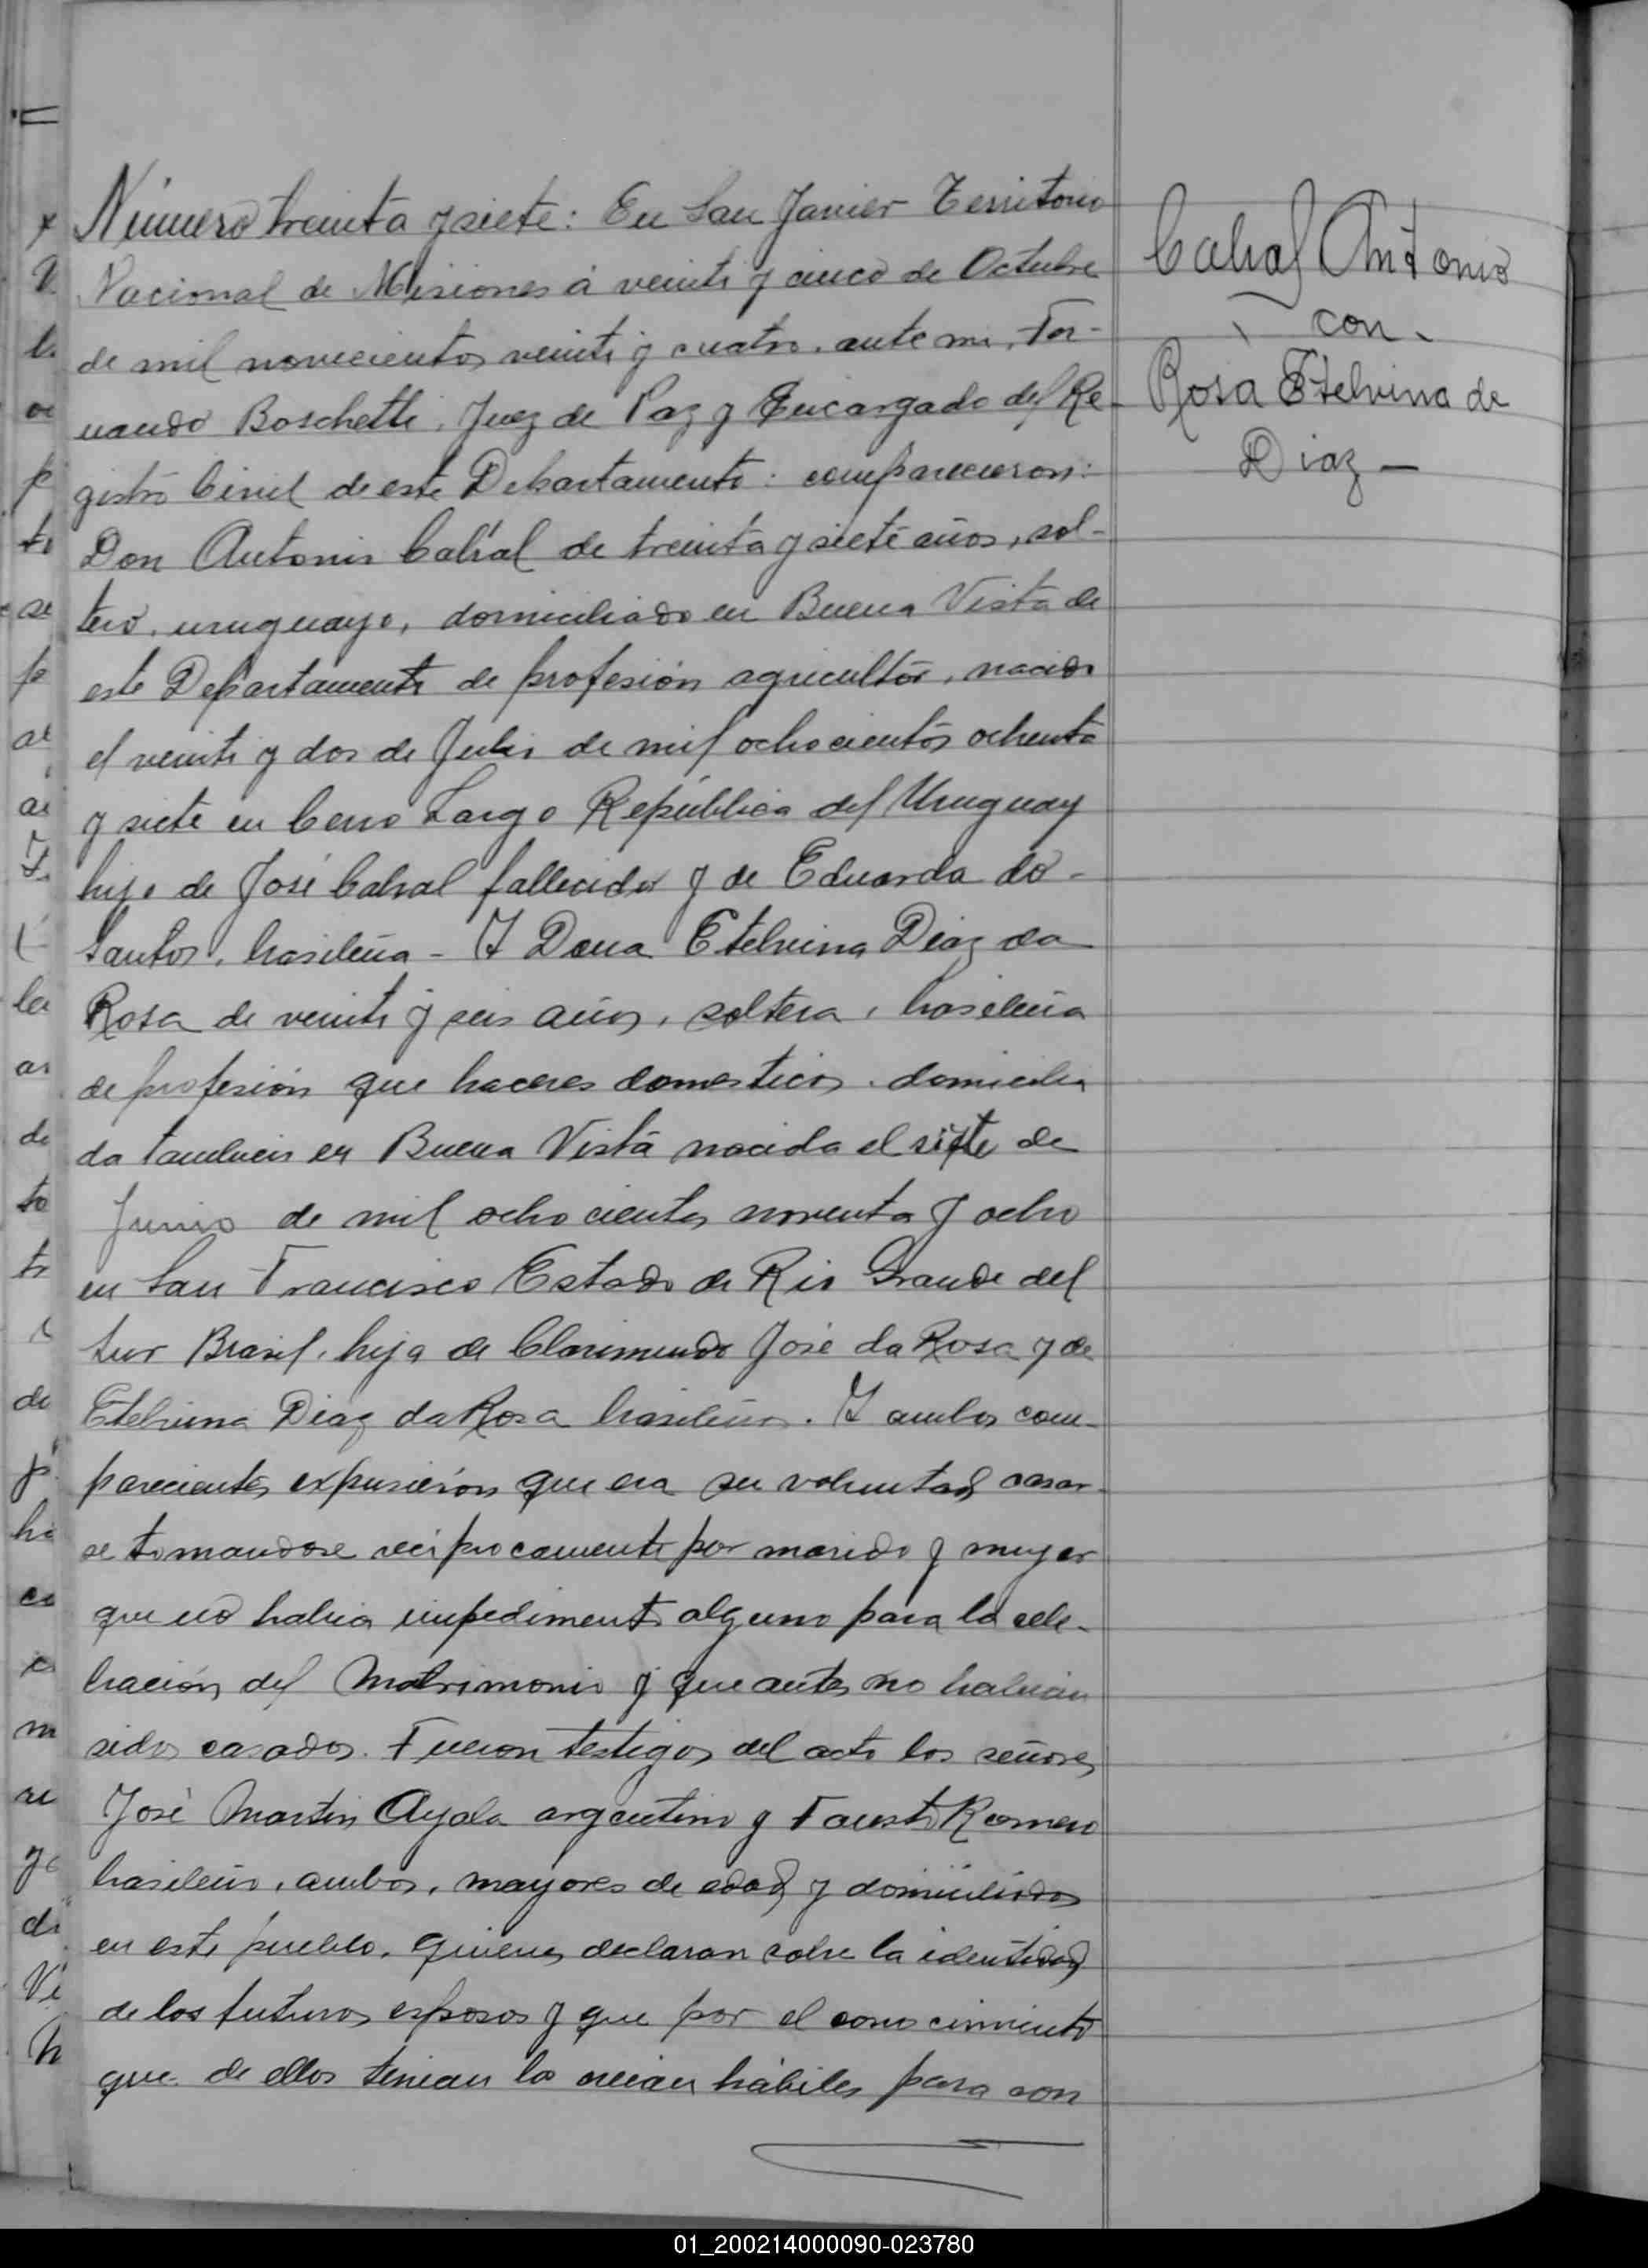 Número treinta y siete: En San Javier Territorio
Nacional de Misiones á veinti y cinco de Octubre
de mil novecientos veinti y cuatro. ante mi, Fer-
nando Boschetti, Juez de Paz y Encargado del Re-
gistro Civil de este Departamento: comparecieron:
Don Antonio Cabral de treinta y siete años, sol-
tero, uruguayo, domiciliado en Buena Vista de
este Departamento de profesión agricultor, nacido
el veinti y dos de Julio de mil ochocientos ochenta
y siete en Cerro Largo República del Uruguay
hijo de José Cabral fallecido y de Eduarda do
Santos, brasileña - Y Doña Etelvina Diaz da
Rosa de veinti y seis años, soltera, brasileña
de profesión que haceres domesticos. domicilia
da tambien en Buena Vista nacida el siete de
Junio de mil ochocientos noventa y ocho
en San Francisco Estado de Rio Grande del
Sur Brasil, hija de Clarimundo José da Rosa y de
Etelvina Diaz da Rosa brasileños. Y ambos com-
parecientes expusieron que era su voluntad casar-
se tomandose recíprocamente por marido y mujer
que no habia impedimento alguno para la cele-
bración del Matrimonio y que antes no habian
sidos casados. Fueron testigos del acto los señores
José Martin Ayala argentino y Fausto Romero
brasileño, ambos, mayores de edad y domiciliados
en este pueblo, quienes declaran sobre la identidad
de los futuros esposos y que por el conocimiento
que de ellos tenian lo creian hábiles para con
Cabral Antonio
con
Rosa Etelvina de
Diaz —
01_200214000090-023780